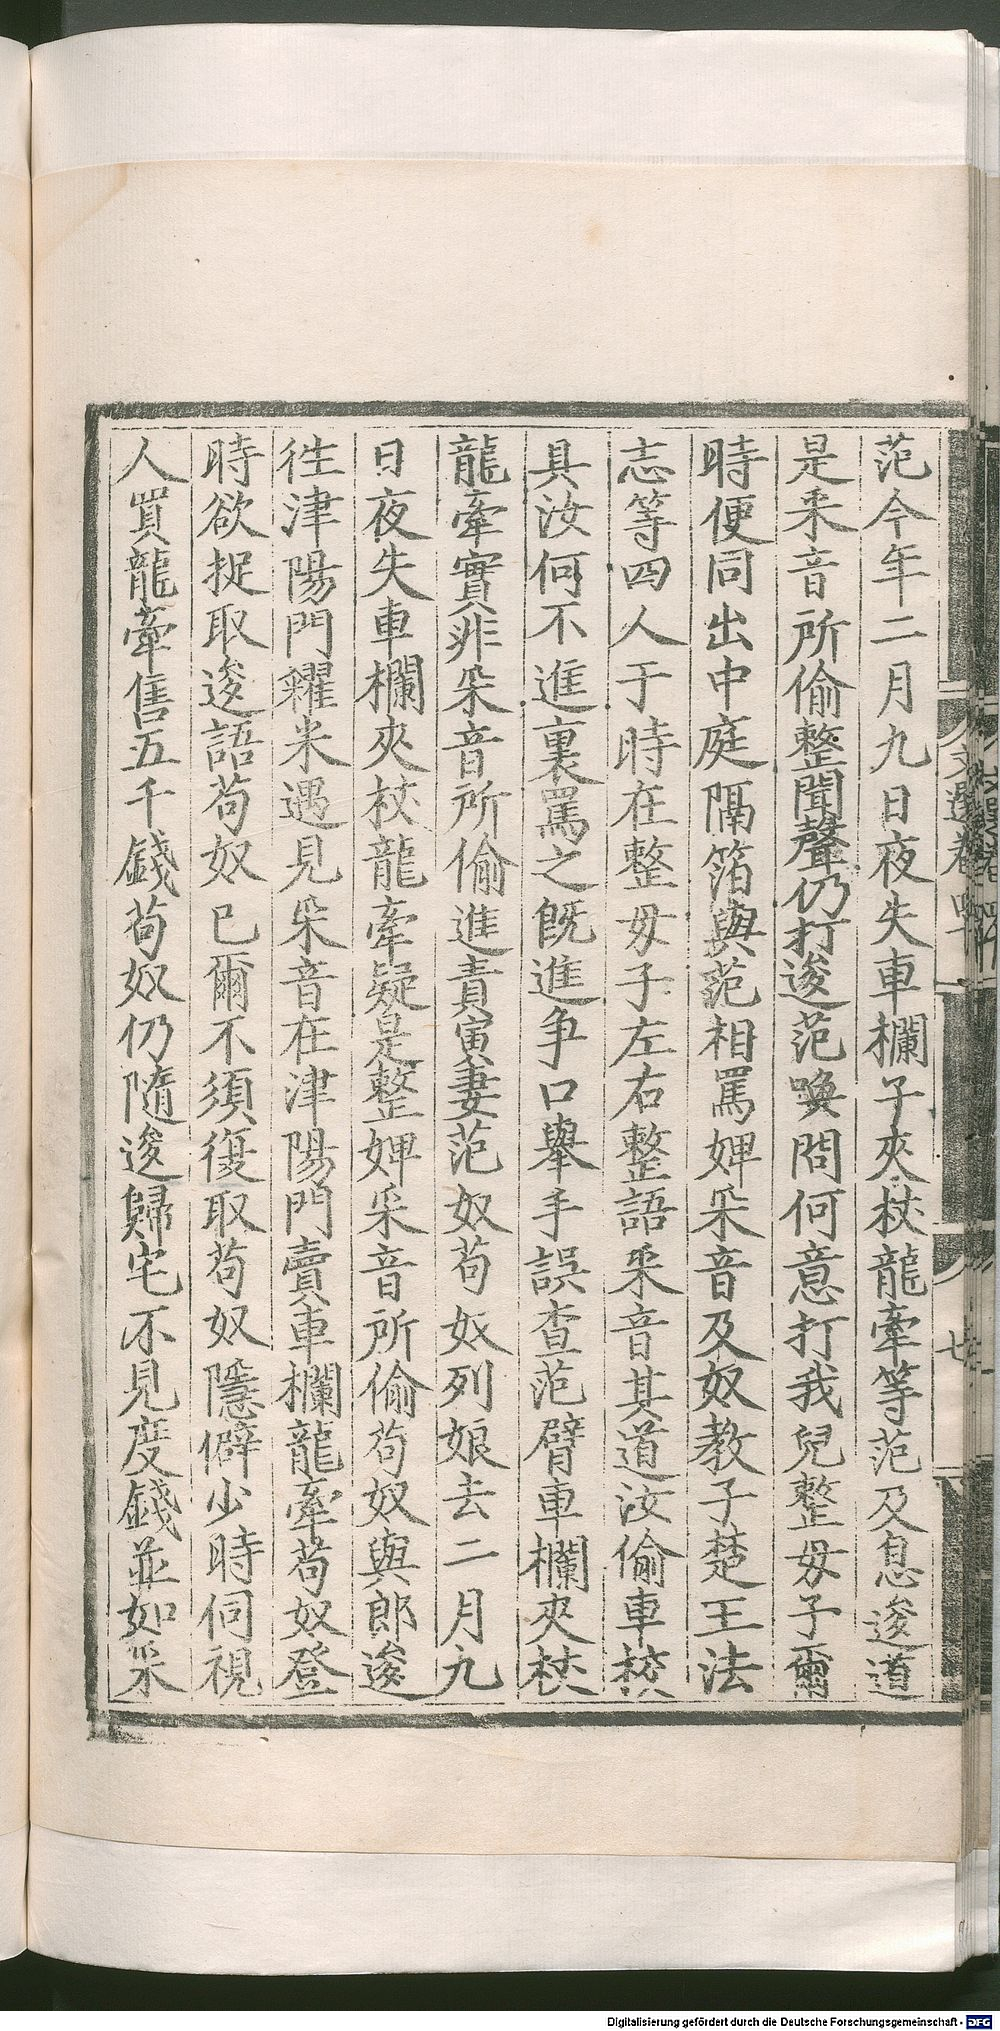 范今年二月九日夜失車欄子夾杖龍牽等范及息逡道
是采音所偷整聞聲仍打逡范喚問何意打我兒整母子爾
時便同出中庭隔箔與范相罵婢采音及奴教子楚玉法
志等四人于時在整母子左右整語采音其道汝偷車校
具汝何不進裏罵之既進爭口舉手誤查范臂車欄夾杖
龍牽實非采音所偷進責寅妻范奴苟奴列娘去二月九
日夜失車欄夾杖龍牽疑是整婢采音所偷苟奴與郎逡
往津陽門糴米遇見采音在津陽門賣車欄龍牽苟奴登
時欲捉取逡語苟奴已爾不須復取苟奴隱僻少時伺視
人買龍牽售五千錢苟奴仍隨逡歸宅不見度錢並如采
文選卷四十
七
Digitalisierung gefördert durch die Deutsche Forschungsgemeinschaft - DFG